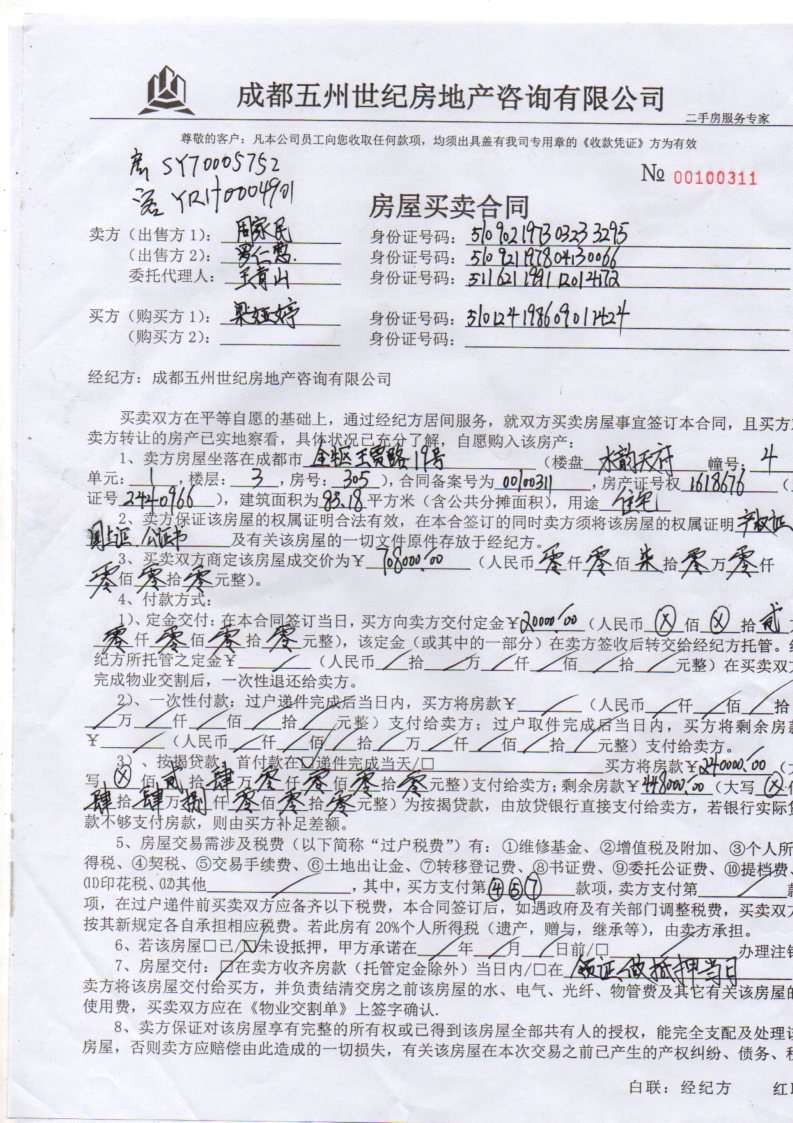 成都五州世纪房地产咨询有限公司
二手房服务专家
尊敬的客户：凡本公司员工向您收取任何款项，均须出具盖有我司专用章的《收款凭证》方为有效
SY70005752
YR170004901
№ 00100311
房屋买卖合同
卖方（出售方1）：周家民 身份证号码：510902197303233295
（出售方2）：罗仁惠 身份证号码：510921197804130066
委托代理人：王青山 身份证号码：511621199112014172
买方（购买方1）：梁娅婷 身份证号码：510124198609011424
（购买方2）： 身份证号码：
经纪方：成都五州世纪房地产咨询有限公司
买卖双方在平等自愿的基础上，通过经纪方居间服务，就双方买卖房屋事宜签订本合同，且买方
卖方转让的房产已实地察看，具体状况已充分了解，自愿购入该房产：
1、卖方房屋坐落在成都市 金牛区王贾路19号 （楼盘 水韵天府 幢号：4
单元：1，楼层：3，房号：305），合同备案号为 00100311，房产证号权 1618676（
证号 2440966），建筑面积为 85.18 平方米（含公共分摊面积），用途 住宅
2、卖方保证该房屋的权属证明合法有效，在本合签订的同时卖方须将该房屋的权属证明 产权证
国土证 公证书 及有关该房屋的一切文件原件存放于经纪方。
3、买卖双方商定该房屋成交价为￥708000.00（人民币 零 仟 零 佰 柒 拾 零 万 零 仟
零 佰 零 拾 零 元整）。
4、付款方式：
1）、定金交付：在本合同签订当日，买方向卖方交付定金￥20000.00（人民币 ⊗ 佰 ⊗ 拾 贰
零 仟 零 佰 零 拾 零 元整），该定金（或其中的一部分）在卖方签收后转交给经纪方托管。
纪方所托管之定金￥ / （人民币 / 拾 / 万 / 仟 / 佰 / 拾 / 元整）在买卖双
完成物业交割后，一次性退还给卖方。
2）、一次性付款：过户递件完成后当日内，买方将房款￥ / （人民币 / 仟 / 佰 / 拾
/ 万 / 仟 / 佰 / 拾 / 元整）支付给卖方；过户取件完成后当日内，买方将剩余房
￥ / （人民币 / 仟 / 佰 / 拾 / 万 / 仟 / 佰 / 拾 / 元整）支付给卖方。
3）、按揭贷款，首付款在☑递件完成当天/□ 买方将房款￥240000.00（大
写 ⊗ 佰 贰 拾 肆 万 零 仟 零 佰 零 拾 零 元整）支付给卖方；剩余房款￥448000.00（大写 ⊗
肆 拾 肆 万 捌 仟 零 佰 零 拾 零 元整）为按揭贷款，由放贷银行直接支付给卖方，若银行实际
款不够支付房款，则由买方补足差额。
5、房屋交易需涉及税费（以下简称“过户税费”）有：①维修基金、②增值税及附加、③个人所
得税、④契税、⑤交易手续费、⑥土地出让金、⑦转移登记费、⑧书证费、⑨委托公证费、⑩提档费、
⑾印花税、⑿其他 / ，其中，买方支付第 ④⑤⑦ 款项，卖方支付第 /
项，在过户递件前买卖双方应备齐以下税费，本合同签订后，如遇政府及有关部门调整税费，买卖双
按其新规定各自承担相应税费。若此房有20%个人所得税（遗产，赠与，继承等），由卖方承担。
6、若该房屋□已/☑未设抵押，甲方承诺在 / 年 / 月 / 日前/□ 办理注
7、房屋交付：☑在卖方收齐房款（托管定金除外）当日内/□在 领证做抵押当日
卖方将该房屋交付给买方，并负责结清交房之前该房屋的水、电气、光纤、物管费及其它有关该房屋的
使用费，买卖双方应在《物业交割单》上签字确认.
8、卖方保证对该房屋享有完整的所有权或已得到该房屋全部共有人的授权，能完全支配及处理该
房屋，否则卖方应赔偿由此造成的一切损失，有关该房屋在本次交易之前已产生的产权纠纷、债务、
白联：经纪方 红